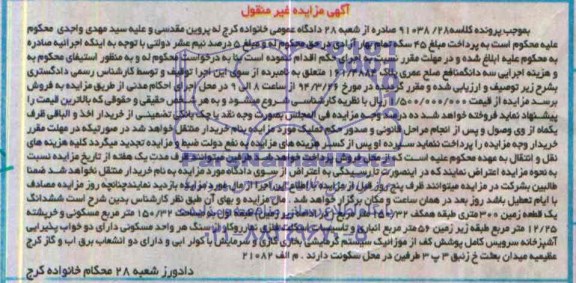 آگهی مزایده غیر منقول
بموجب پرونده کلاسه ۹۱۰۳۸/۲۸ صادره از شعبه ۲۸ دادگاه عمومی خانواده کرج له پروین مقدسی و علیه سید مهدی واحدی محکوم
علیه محکوم است به پرداخت مبلغ ۴۵ سکه تمام بهار آزادی در حق محکوم له و مبلغ ۵ درصد نیم عشر دولتی با توجه به اینکه اجرائیه صادره
به محکوم علیه ابلاغ شده و در مهلت مقرر نسبت به اجرای حکم اقدام ننموده است بنا به درخواست محکوم له و به منظور استیفای محکوم به
و هزینه اجرایی سه دانگ مشاع صلح عمری پلاک متعلق به نامبرده از سوی این اجرا توقیف و توسط کارشناس رسمی دادگستری
بشرح زیر توصیف و ارزیابی شده و مقرر گردید در مورخ ۹۴/۳/۲۶ از ساعت ۹ در محل اجرای احکام مدنی از طریق مزایده به فروش
برسد مزایده از قیمت ریال با نظریه کارشناسی شروع میشود و به هر شخص حقیقی و حقوقی که بالاترین قیمت را
پیشنهاد نماید فروخته خواهد شد ده درصد وجه مزایده فی المجلس بصورت وجه نقد یا چک بانکی تضمینی از خریدار اخذ و الباقی ظرف
یکماه از وی وصول و پس از انجام مراحل قانونی و صدور حکم تملیک مورد مزایده بنام خریدار منتقل خواهد شد در صورتیکه در مهلت مقرر
خریدار وجه مزایده را پرداخت ننماید سپرده او پس از کسر هزینه های مزایده به نفع دولت ضبط و مزایده تجدید میگردد کلیه هزینه های
نقل و انتقال به عهده محکوم علیه است که از محل فروش پرداخت خواهد شد طرفین میتوانند ظرف مدت یک هفته از تاریخ مزایده نسبت
به نحوه مزایده اعتراض نمایند که در اینصورت تا رسیدگی به اعتراض از سوی دادگاه مورد مزایده به نام خریدار منتقل نخواهد شد ضمنا
طالبین بشرکت در مزایده میتوانند ظرف پنج روز قبل از مزایده با اطلاع این اجرا از مال مورد مزایده بازدید نمایند چنانچه روز مزایده مصادف
با ایام تعطیل باشد روز بعد در همان ساعت و مکان برگزار خواهد شد. مال مزایده و بهای آن طبق نظر کارشناس بدین شرح است ششدانگ
یک قطعه زمین ۳۰۰ متری طبقه همکف ۱۵۰/۳۲ متر مربع مسکونی و خرپشته
۱۲/۲۵ متر مربع طبقه زیر زمین ۵۶ متر مربع انباری و تاسیسات سنگ هر واحد مسکونی دارای دو خواب پذیرایی
آشپزخانه سرویس کامل پوشش کف از موزائیک سیستم گرمایشی بخاری گازی و سرمایش با کولر آبی و دارای دو انشعاب برق اب و گاز کرج
عظیمیه میدان بعثت خ زنبق ۳ پ ۳ طرفین در محل سکونت دارند . م الف ۲۱۰۸۲
دادورز شعبه ۲۸ محاکم خانواده کرج